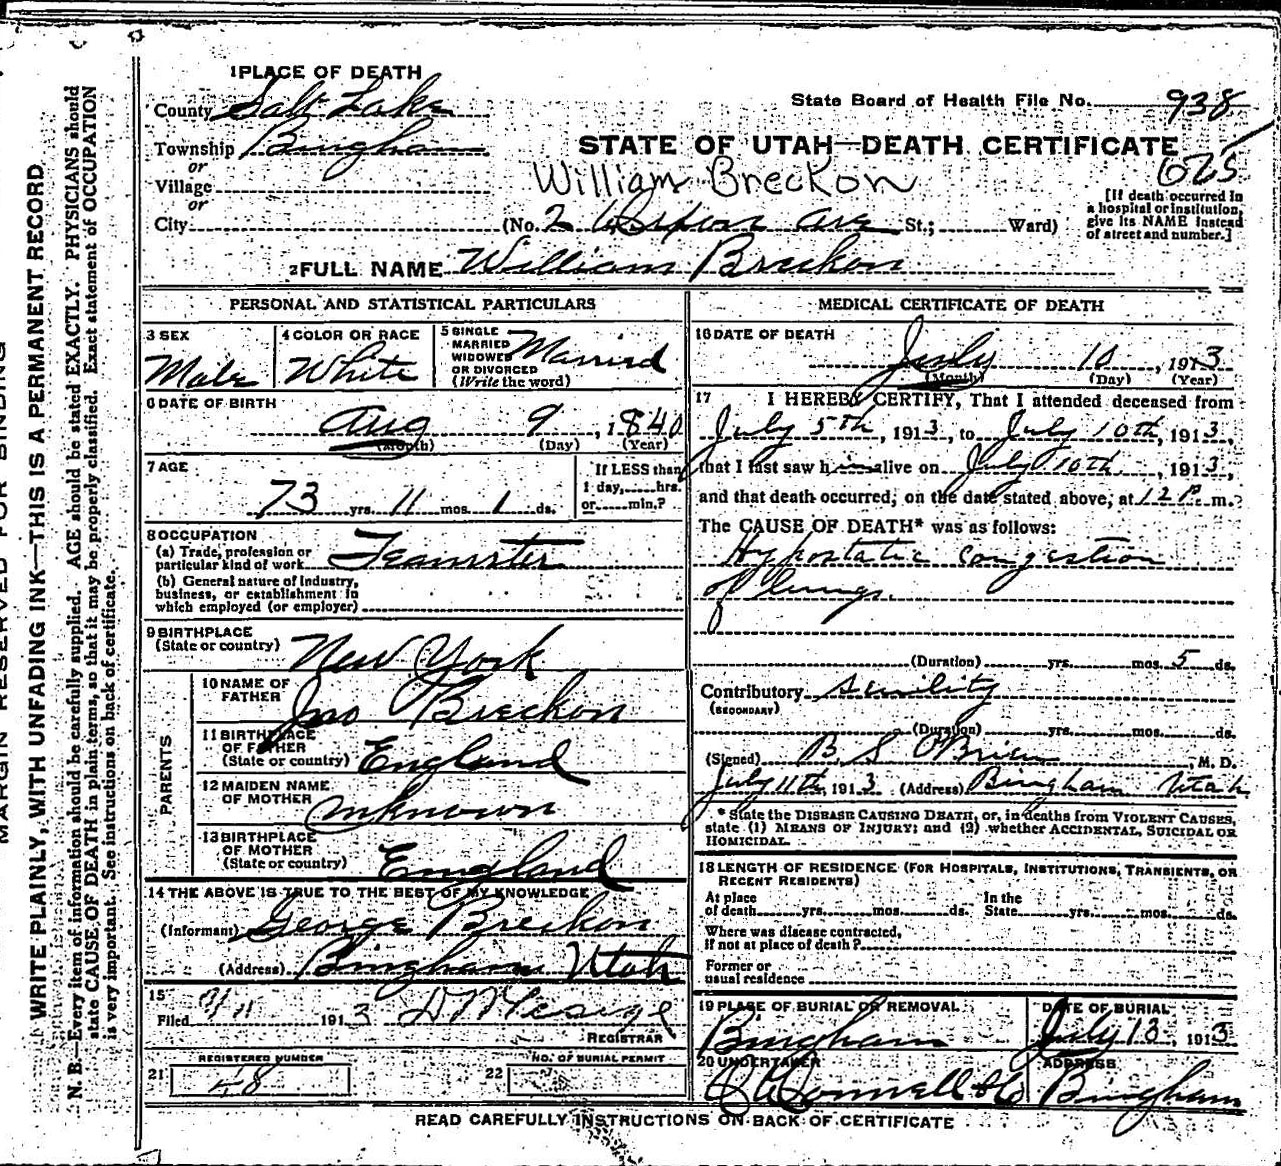 1 PLACE OF DEATH
County Salt Lake
State Board of Health File No. 938
Township Bingham
STATE OF UTAH—DEATH CERTIFICATE
or
Village
William Breckon
625
or
City (No. 2 Ave St.; Ward)
[If death occurred in a hospital or institution, give its NAME instead of street and number.]
2 FULL NAME William Breckon
PERSONAL AND STATISTICAL PARTICULARS
3 SEX
Male
4 COLOR OR RACE
White
5 SINGLE MARRIED WIDOWED OR DIVORCED (Write the word)
Married
6 DATE OF BIRTH
Aug 9, 1840
(Month) (Day) (Year)
7 AGE
73 yrs. 11 mos. 1 ds.
If LESS than 1 day,......hrs. or......min.?
8 OCCUPATION
(a) Trade, profession or particular kind of work Teamster
(b) General nature of industry, business, or establishment in which employed (or employer)
9 BIRTHPLACE
(State or country) New York
PARENTS
10 NAME OF FATHER Jno Breckon
11 BIRTHPLACE OF FATHER (State or country) England
12 MAIDEN NAME OF MOTHER unknown
13 BIRTHPLACE OF MOTHER (State or country) England
14 THE ABOVE IS TRUE TO THE BEST OF MY KNOWLEDGE
(Informant) George Breckon
(Address) Bingham Utah
15
Filed 191 3
REGISTRAR
REGISTERED NUMBER
21 48
NO. OF BURIAL PERMIT
22
MEDICAL CERTIFICATE OF DEATH
16 DATE OF DEATH
July 10, 1913
(Month) (Day) (Year)
17 I HEREBY CERTIFY, That I attended deceased from
July 5th, 1913, to July 10th, 1913,
that I last saw him alive on July 10th, 1913,
and that death occurred, on the date stated above, at 12 P m.
The CAUSE OF DEATH* was as follows:
Hypostatic congestion
of lungs.
(Duration) yrs. mos. 5 ds.
Contributory senility
(SECONDARY)
(Duration) yrs. mos. ds.
(Signed) B. S. O'Brien, M. D.
July 11th, 1913 (Address) Bingham Utah
* State the DISEASE CAUSING DEATH, or, in deaths from VIOLENT CAUSES,
state (1) MEANS OF INJURY; and (2) whether ACCIDENTAL, SUICIDAL OR
HOMICIDAL.
18 LENGTH OF RESIDENCE (FOR HOSPITALS, INSTITUTIONS, TRANSIENTS, OR
RECENT RESIDENTS)
At place of death yrs. mos. ds. In the State yrs. mos. ds.
Where was disease contracted,
if not at place of death?
Former or
usual residence
19 PLACE OF BURIAL OR REMOVAL
Bingham
DATE OF BURIAL
July 13, 1913
20 UNDERTAKER
ADDRESS
Bingham
READ CAREFULLY INSTRUCTIONS ON BACK OF CERTIFICATE
MARGIN RESERVED FOR BINDING
WRITE PLAINLY, WITH UNFADING INK—THIS IS A PERMANENT RECORD
N. B.—Every item of information should be carefully supplied. AGE should be stated EXACTLY. PHYSICIANS should
state CAUSE OF DEATH in plain terms, so that it may be properly classified. Exact statement of OCCUPATION
is very important. See instructions on back of certificate.